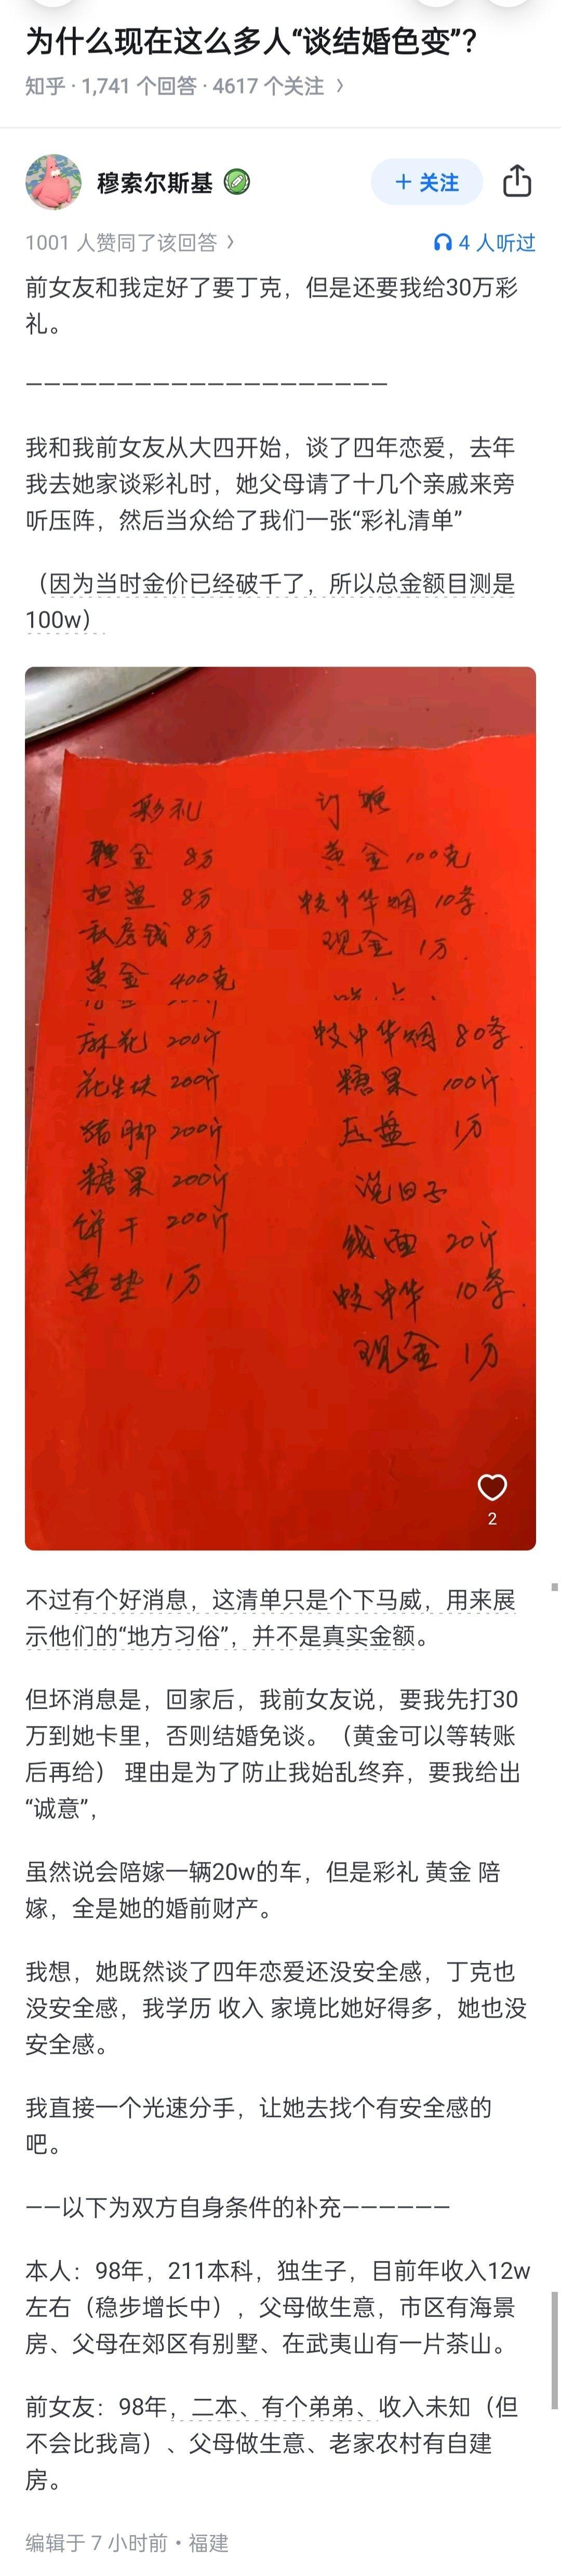 为什么现在这么多人“谈结婚色变”？
知乎 · 1,741 个回答 · 4617 个关注 >
穆索尔斯基
+ 关注
1001 人赞同了该回答 >
4 人听过
前女友和我定好了要丁克，但是还要我给30万彩
礼。
————————————————————
我和我前女友从大四开始，谈了四年恋爱，去年
我去她家谈彩礼时，她父母请了十几个亲戚来旁
听压阵，然后当众给了我们一张“彩礼清单”
（因为当时金价已经破千了，所以总金额目测是
100w）
彩礼
聘金 8万
担盪 8万
私房钱 8万
黄金 400克
麻花 200斤
花生块 200斤
猪脚 200斤
糖果 200斤
饼干 200斤
盘垫 1万
订聘
黄金 100克
软中华烟 10条.
现金 1万.
软中华烟 80条.
糖果 100斤
压盘 1万
说日子
线面 20斤
软中华 10条.
现金 1万
2
不过有个好消息，这清单只是个下马威，用来展
示他们的“地方习俗”，并不是真实金额。
但坏消息是，回家后，我前女友说，要我先打30
万到她卡里，否则结婚免谈。（黄金可以等转账
后再给） 理由是为了防止我始乱终弃，要我给出
“诚意”，
虽然说会陪嫁一辆20w的车，但是彩礼 黄金 陪
嫁，全是她的婚前财产。
我想，她既然谈了四年恋爱还没安全感，丁克也
没安全感，我学历 收入 家境比她好得多，她也没
安全感。
我直接一个光速分手，让她去找个有安全感的
吧。
——以下为双方自身条件的补充——————
本人：98年，211本科，独生子，目前年收入12w
左右（稳步增长中），父母做生意，市区有海景
房、父母在郊区有别墅、在武夷山有一片茶山。
前女友：98年，二本、有个弟弟、收入未知（但
不会比我高）、父母做生意、老家农村有自建
房。
编辑于 7 小时前 · 福建